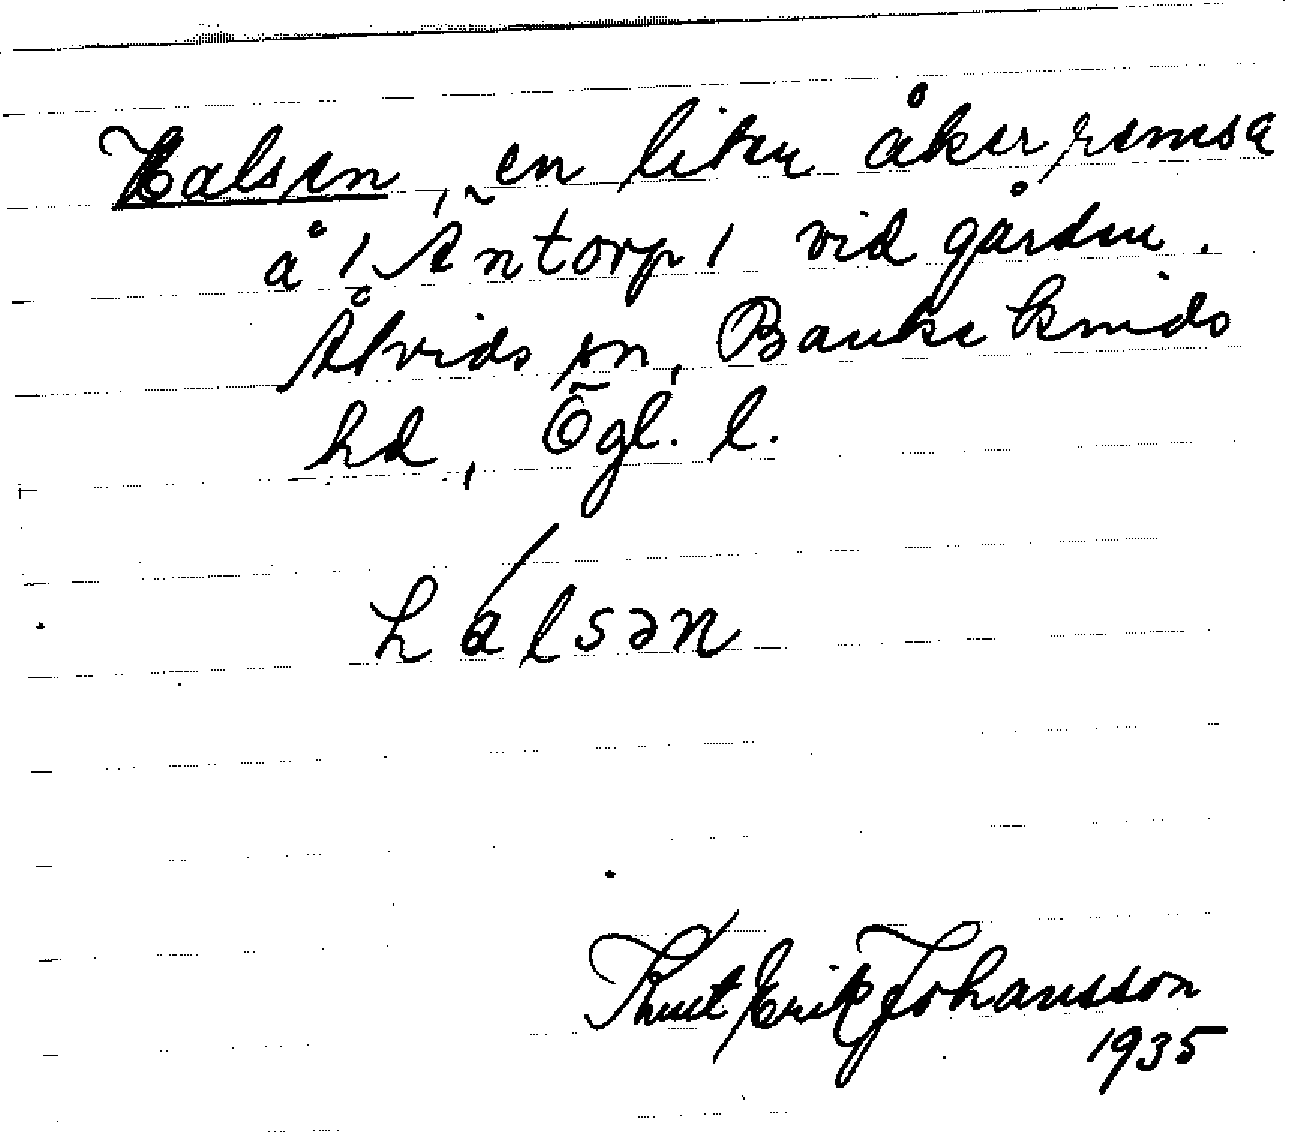 Halsen, en liten åkerremsa
å 1 Äntorp 1 vid gården.
Åtvids sn, Bankekinds
hd, Ögl. l.
hálsən
Knut Erik Johansson
1935